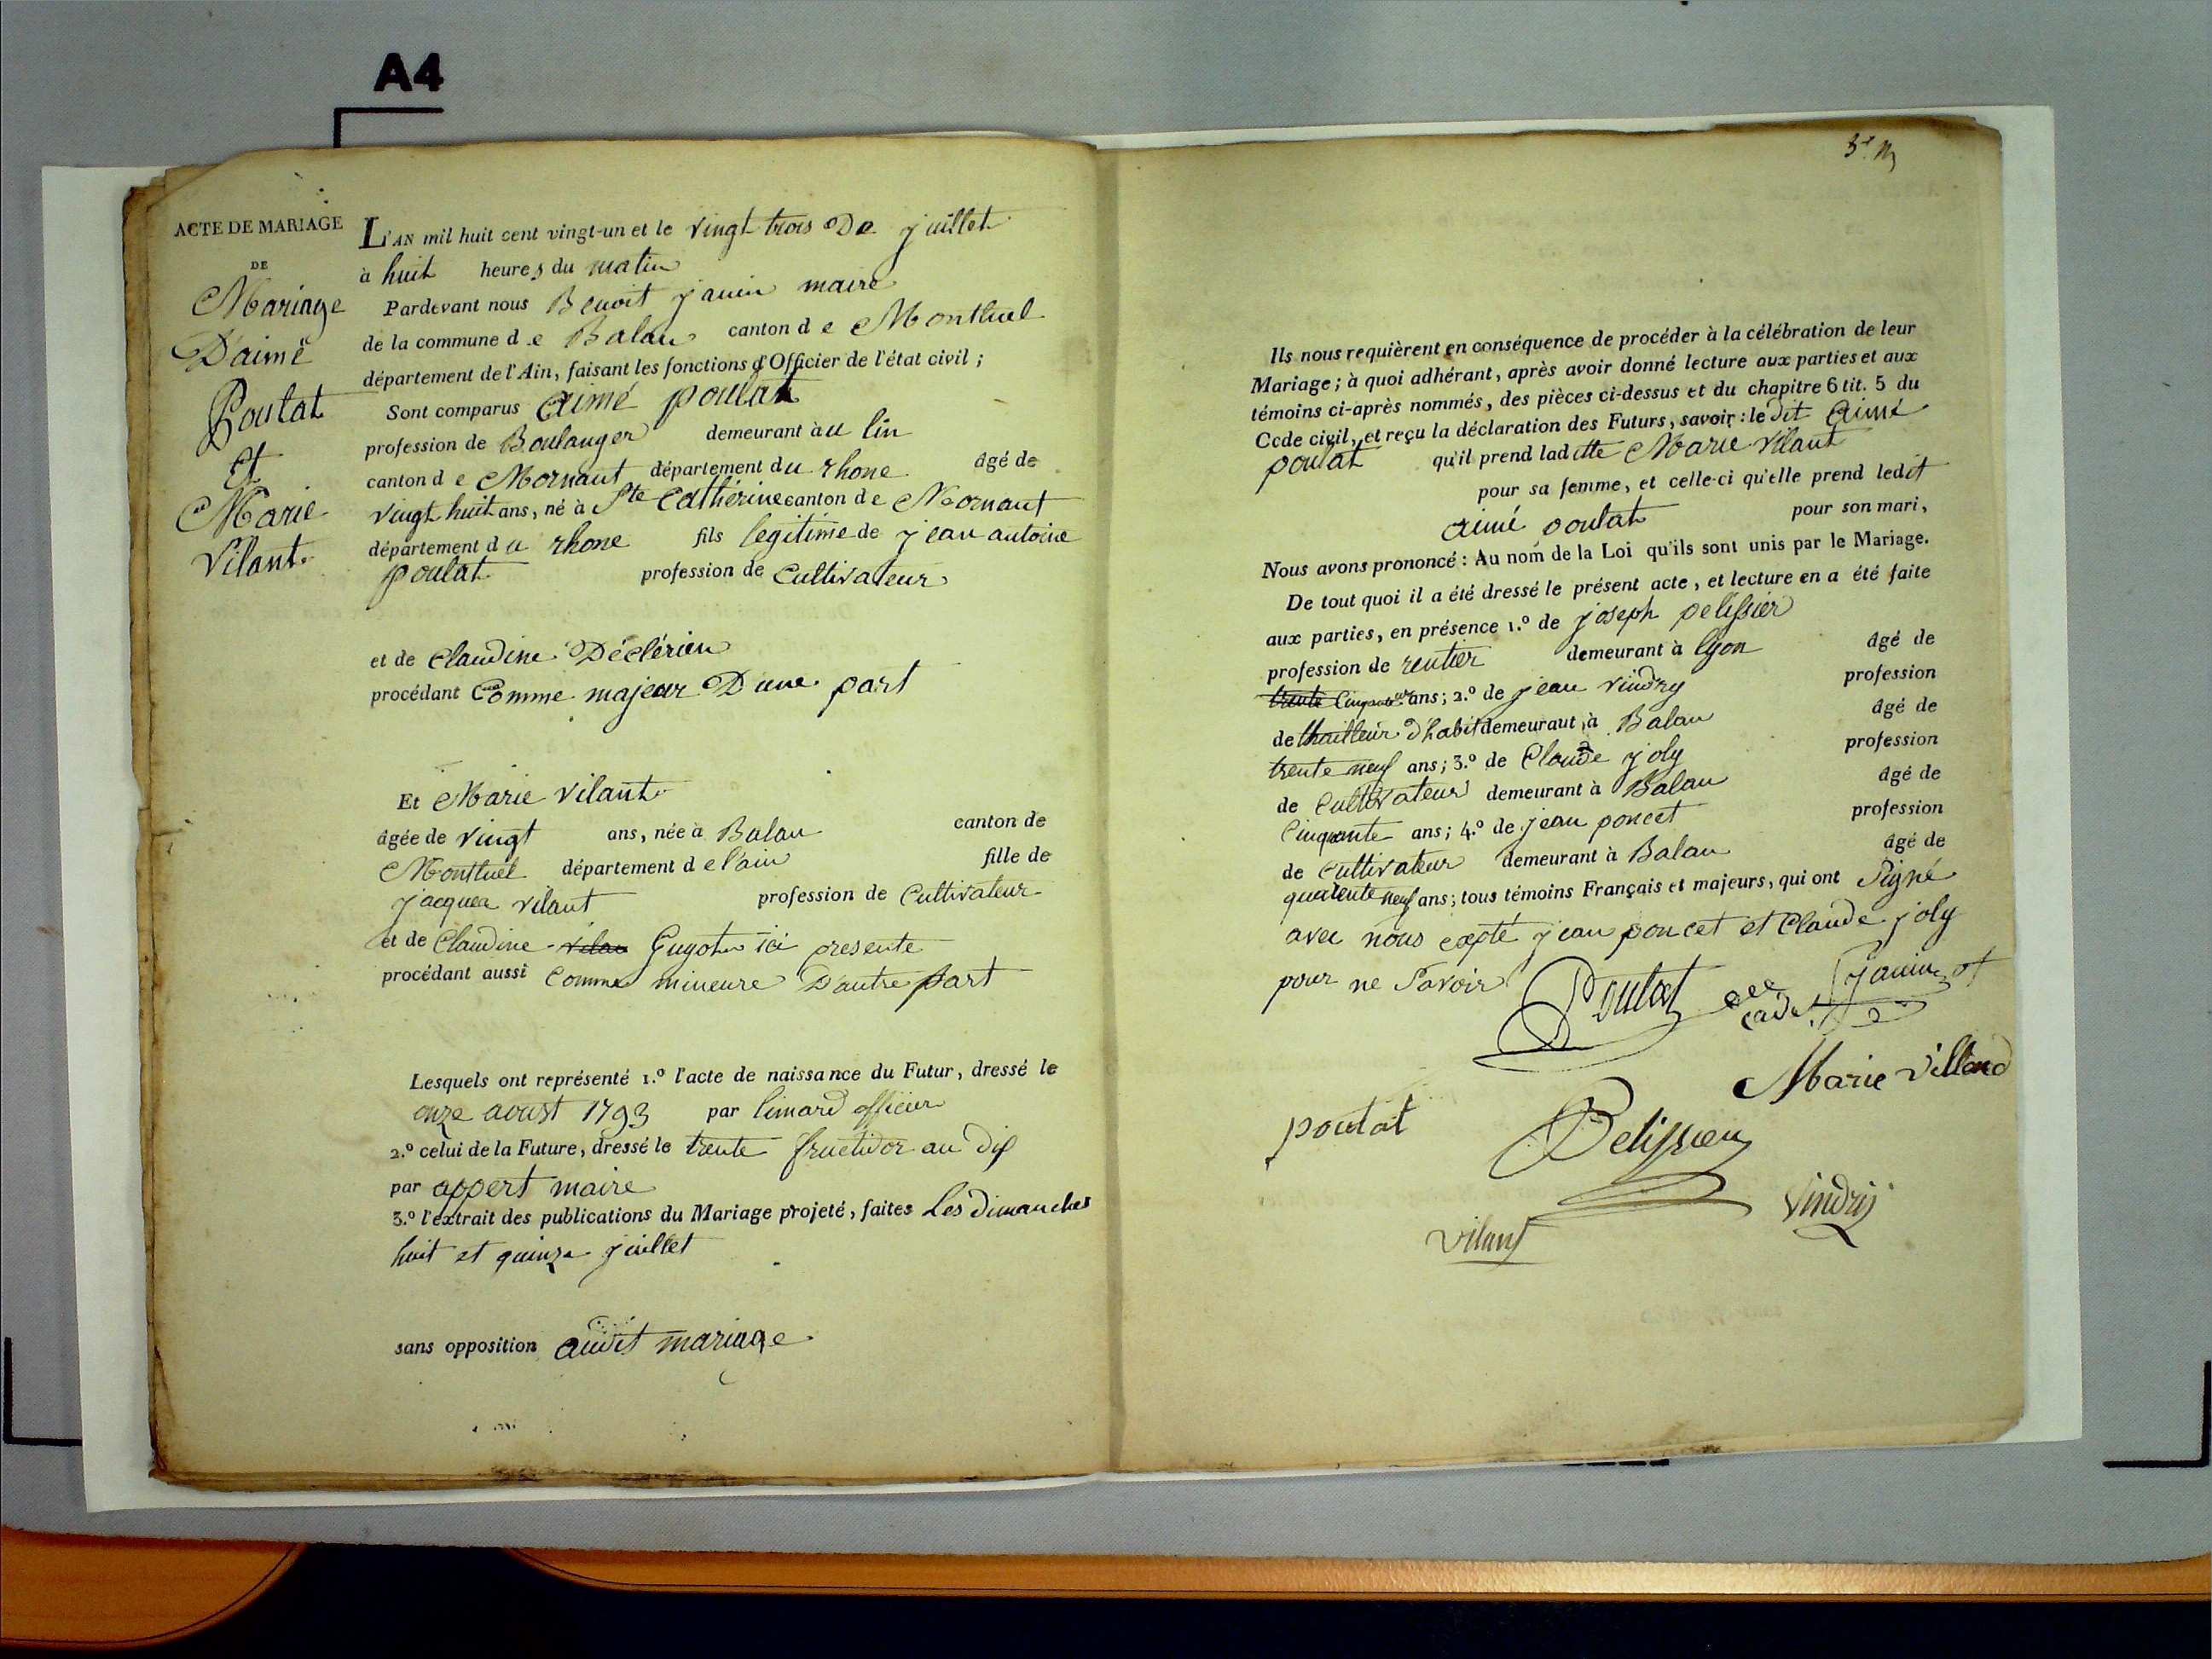 A4
ACTE DE MARIAGE
DE
Mariage
D'aimé
Poulat
Et
Marie
Vilant
L'AN mil huit cent vingt-un et le vingt trois De juillet
à huit heures du matin
Pardevant nous Benoit janin maire
de la commune de Balan canton de Montluel
département de l'Ain, faisant les fonctions d'Officier de l'état civil;
Sont comparus aimé poulat
profession de Boulanger demeurant àu lin
canton de Mornant département du rhone âgé de
vingt huit ans, né à Ste Catherine canton de Mornant
département du rhone fils legitime de jean antoine
poulat profession de Cultivateur
et de Claudine Déclérieu
procédant Comme majeur D'une part
Et Marie vilant
âgée de vingt ans, née à Balan canton de
Montluel département de l'ain fille de
jacques vilant profession de Cultivateur
et de Claudine vilan Guyot ici presente
procédant aussi Comme mineure D'autre part
Lesquels ont représenté 1.º l'acte de naissance du Futur, dressé le
onze aoust 1793 par limard officier
2.º celui de la Future, dressé le trente fructidor an dix
par appert maire
3.º l'extrait des publications du Mariage projeté, faites Les dimanches
huit et quinze juillet
sans opposition audit mariage
Ils nous requièrent en conséquence de procéder à la célébration de leur
Mariage; à quoi adhérant, après avoir donné lecture aux parties et aux
témoins ci-après nommés, des pièces ci-dessus et du chapitre 6 tit. 5 du
Code civil, et reçu la déclaration des Futurs, savoir: le dit aimé
poulat qu'il prend laditte Marie vilant
pour sa femme, et celle-ci qu'elle prend ledit
aimé poulat pour son mari,
Nous avons prononcé: Au nom de la Loi qu'ils sont unis par le Mariage.
De tout quoi il a été dressé le présent acte, et lecture en a été faite
aux parties, en présence 1.º de joseph pelissier
profession de rentier demeurant à lyon âgé de
trente Cinquante ans; 2.º de jean vindry profession
de thailleur d'habit demeurant à Balan âgé de
trente neuf ans; 3.º de Claude joly profession
de Cultivateur demeurant à Balan âgé de
Cinquante ans; 4.º de jean poncet profession
de Cultivateur demeurant à Balan âgé de
quarente neuf ans; tous témoins Français et majeurs, qui ont Signé
avec nous excpté jean poncet et Claude joly
pour ne Savoir
Poulat
Janin
Marie villand
poulat
Pelissier
Vindry
vilant